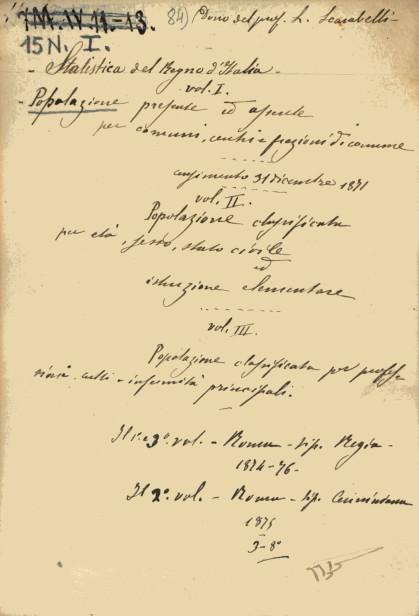 IM. IV 11.-13. 84) (Dono del prof. L. Scarabelli-
15 N. I.
- Statistica del Regno d'Italia -
vol. I.
- Popolazione presente ed assente
per comuni, centri e frazioni di comune
censimento 31 dicembre 1871
vol. II.
Popolazione classificata
per età, sesso, stato civile
ed
istruzione elementare
vol. III.
Popolazione classificata per profes-
sioni, culti e infermità principali.
Il 1º e 3º vol. - Roma - tip. Regia -
1874-76-
Il 2º vol. - Roma - tip. Cenniniana
1875
3-8º